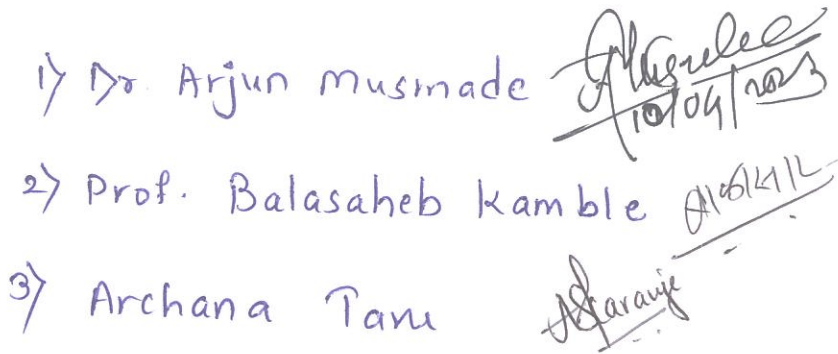 1) Dr. Arjun Musmade
10/04/2023
2) Prof. Balasaheb Kamble
3) Archana